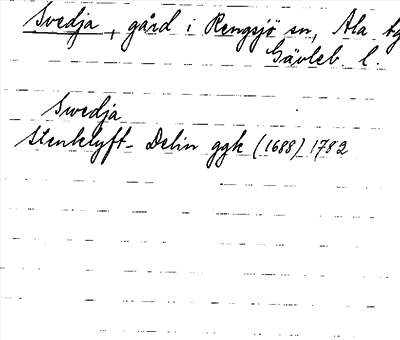 Svedja, gård i Rengsjö sn, Ala tg
Gävleb. l.
Swedja
Stenklyft- Delin ggk (1688) 1782